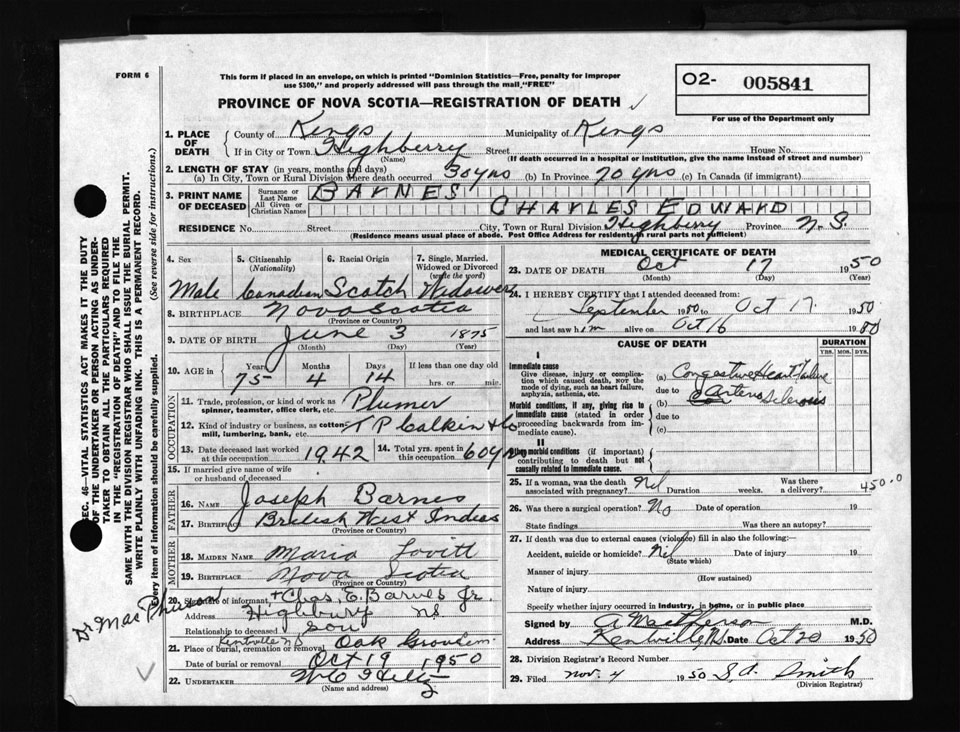 FORM 6
This form if placed in an envelope, on which is printed "Dominion Statistics—Free, penalty for improper
use $300," and properly addressed will pass through the mail "FREE"
O2- 005841
For use of the Department only
PROVINCE OF NOVA SCOTIA—REGISTRATION OF DEATH
1. PLACE OF DEATH
County of Kings Municipality of Kings
If in City or Town Highberry Street House No.
(Name) (If death occurred in a hospital or institution, give the name instead of street and number)
2. LENGTH OF STAY (in years, months and days)
(a) In City, Town or Rural Division where death occurred 30 yrs (b) In Province 70 yrs (c) In Canada (if immigrant)
3. PRINT NAME OF DECEASED
Surname or Last Name BARNES
All Given or Christian Names CHARLES EDWARD
RESIDENCE No. Street City, Town or Rural Division Highberry Province N.S.
(Residence means usual place of abode. Post Office Address for residents in rural parts not sufficient)
4. Sex 5. Citizenship (Nationality) 6. Racial Origin 7. Single, Married, Widowed or Divorced (write the word)
Male Canadian Scotch Widower
8. BIRTHPLACE Nova Scotia
(Province or Country)
9. DATE OF BIRTH June 3 1875
(Month) (Day) (Year)
10. AGE in Years Months Days If less than one day old
75 4 14 hrs. or min.
OCCUPATION
11. Trade, profession, or kind of work as
spinner, teamster, office clerk, etc. Plumer
12. Kind of industry or business, as cotton
mill, lumbering, bank, etc. T P Calkin & Co
13. Date deceased last worked at this occupation 1942 14. Total yrs. spent in this occupation 60 yrs
15. If married give name of wife
or husband of deceased
FATHER
16. NAME Joseph Barnes
17. BIRTHPLACE British West Indias
(Province or Country)
MOTHER
18. MAIDEN NAME Maria Lovitt
19. BIRTHPLACE Nova Scotia
(Province or Country)
20. Signature of informant + Chas. E. Barnes Jr.
Address Highbury NS
Relationship to deceased son
Kentville NS
21. Place of burial, cremation or removal Oak Grove Cem.
Date of burial or removal Oct 19 1950
22. UNDERTAKER
(Name and address)
MEDICAL CERTIFICATE OF DEATH
23. DATE OF DEATH Oct 17 1950
(Month) (Day) (Year)
24. I HEREBY CERTIFY that I attended deceased from:
September 1950 to Oct 17. 1950
and last saw him alive on Oct 16 1950
CAUSE OF DEATH
DURATION
YRS. MOS. DYS.
I
Immediate cause
Give disease, injury or complication which caused death, not the mode of dying, such as heart failure, asphyxia, asthenia, etc.
(a) Congestive Heart Failure
due to
Morbid conditions, if any, giving rise to immediate cause (stated in order proceeding backwards from immediate cause)
(b)
due to
(c)
II
Other morbid conditions (if important) contributing to death but not causally related to immediate cause.
25. If a woman, was the death associated with pregnancy? Nil Duration weeks. Was there a delivery?
450.0
26. Was there a surgical operation? No Date of operation 19
State findings Was there an autopsy?
27. If death was due to external causes (violence) fill in also the following:-
Accident, suicide or homicide? Nil Date of injury 19
(State which)
Manner of injury
(How sustained)
Nature of injury
Specify whether injury occurred in industry, in home, or in public place
Signed by A MacPherson M.D.
Address Kentville NS. Date Oct 20 1950
28. Division Registrar's Record Number
29. Filed Nov. 4 1950 Smith
(Division Registrar)
SEC. 46—VITAL STATISTICS ACT MAKES IT THE DUTY
OF THE UNDERTAKER OR PERSON ACTING AS UNDER-
TAKER TO OBTAIN ALL THE PARTICULARS REQUIRED
IN THE "REGISTRATION OF DEATH" AND TO FILE THE
SAME WITH THE DIVISION REGISTRAR WHO SHALL ISSUE THE BURIAL PERMIT.
WRITE PLAINLY WITH UNFADING INK. THIS IS A PERMANENT RECORD.
Every item of information should be carefully supplied. (See reverse side for instructions.)
Dr MacPherson